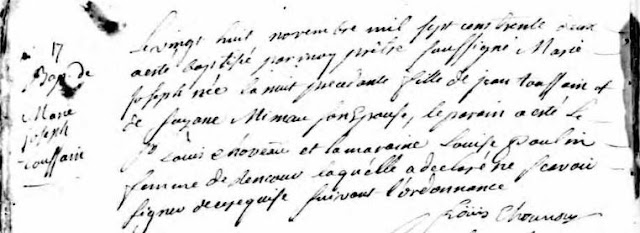 17
Bap. de
Marie
Joseph
Toussain
Le vingt huit novembre mil sept cens trente deux
a esté baptisé par moy prêtre soussigné Marie
Joseph née la nuit precedante fille de jean Toussain et
de Suzane Mimau son Epouse, le parain a esté le
Sr Louis Chovenü et la maraine Louise Paulin
femme de laquelle a declaré ne scavoir
signer de ce requise suivant l'ordonnance
Loüis